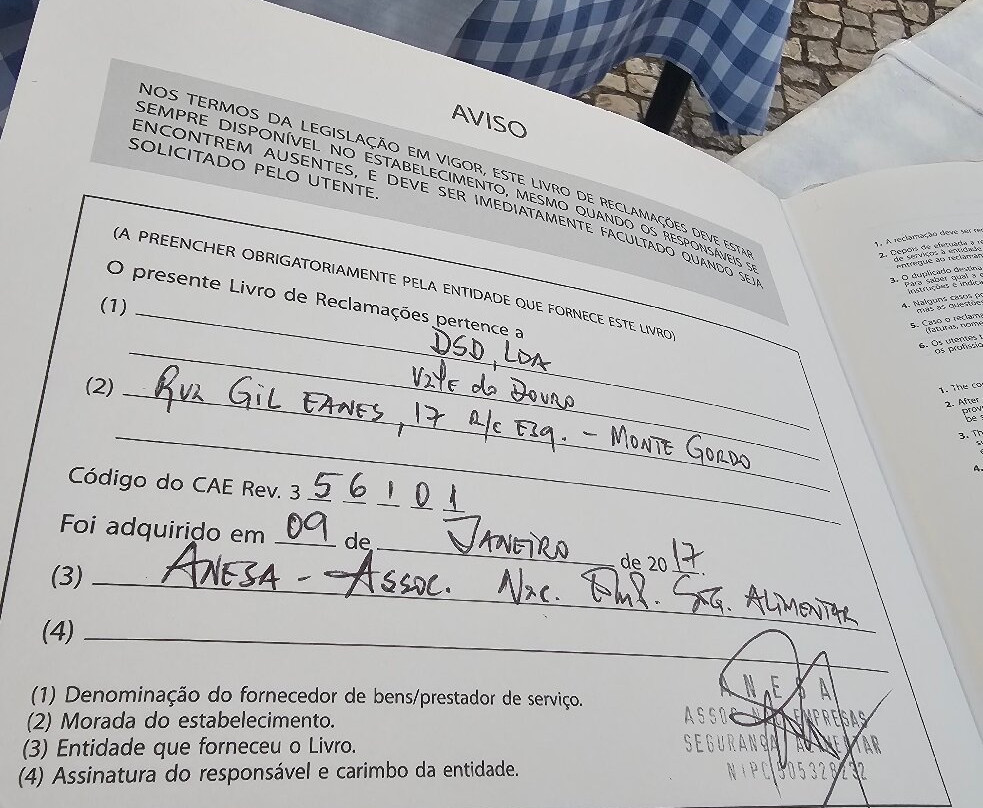 AVISO
NOS TERMOS DA LEGISLAÇÃO EM VIGOR, ESTE LIVRO DE RECLAMAÇÕES DEVE ESTAR
SEMPRE DISPONÍVEL NO ESTABELECIMENTO, MESMO QUANDO OS RESPONSÁVEIS SE
ENCONTREM AUSENTES, E DEVE SER IMEDIATAMENTE FACULTADO QUANDO SEJA
SOLICITADO PELO UTENTE.
(A PREENCHER OBRIGATORIAMENTE PELA ENTIDADE QUE FORNECE ESTE LIVRO)
O presente Livro de Reclamações pertence a
(1) DSD, LDA
Vale do DOURO
(2) Rua GIL EANES, 17 R/C ESQ. - MONTE GORDO
Código do CAE Rev. 3 5 6 1 0 1
Foi adquirido em 09 de JANEIRO de 2017
(3) ANESA - ASSOC. Nac. Emp. SEG. ALIMENTAR
(4)
(1) Denominação do fornecedor de bens/prestador de serviço.
(2) Morada do estabelecimento.
(3) Entidade que forneceu o Livro.
(4) Assinatura do responsável e carimbo da entidade.
A N E S A
EMPRESAS
SEGURANÇA ALIMENTAR
NIPC
1. A reclamação deve ser
2. Depois de efetuada a
de serviços à entidade
entregue ao
3. O duplicado
Para saber qual a
instruções e
4. Nalguns casos
mas as questões
5. Caso o
(faturas,
6. Os utentes
os
1. The
2. After
be
3.
4.